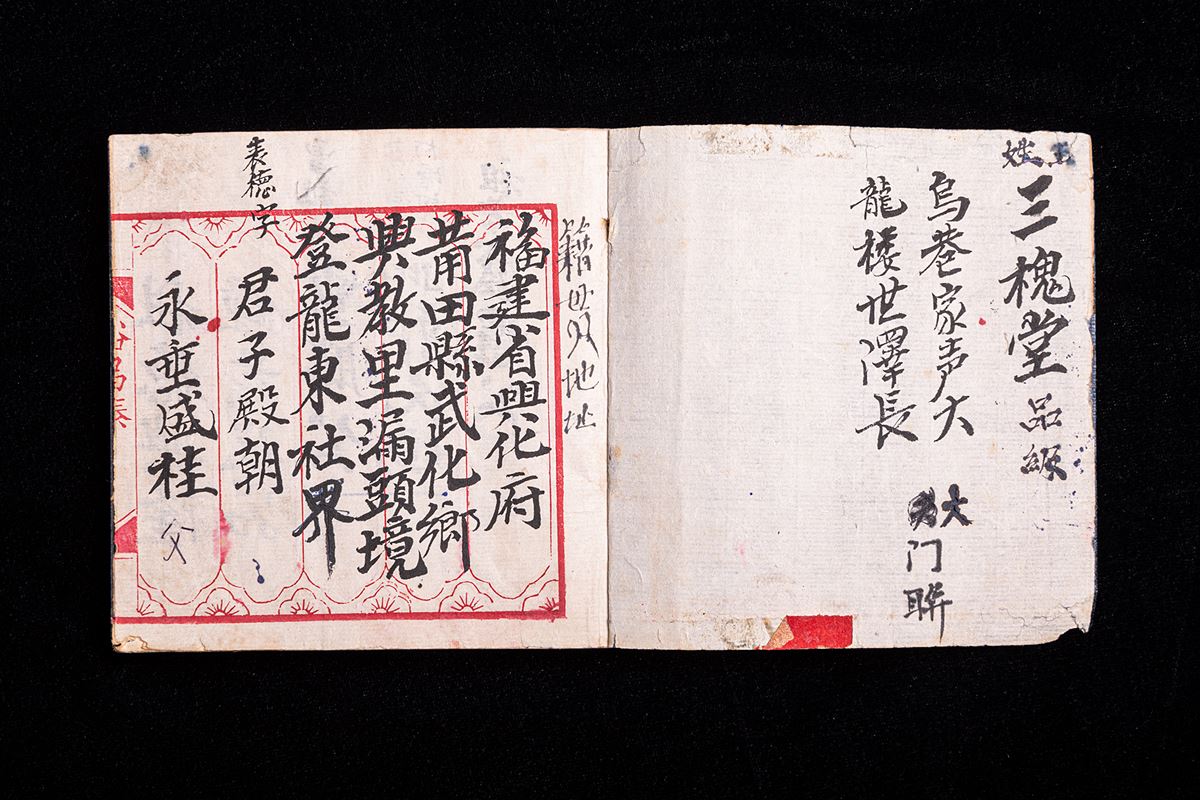 姓王
三槐堂品级
烏巷家声大
龍楼世澤長
大门聨
籍贯地址
福建省興化府
莆田縣武化鄉
興教里漏頭境
登龍東社界
表德字
君子殿朝
永垂盛桂父